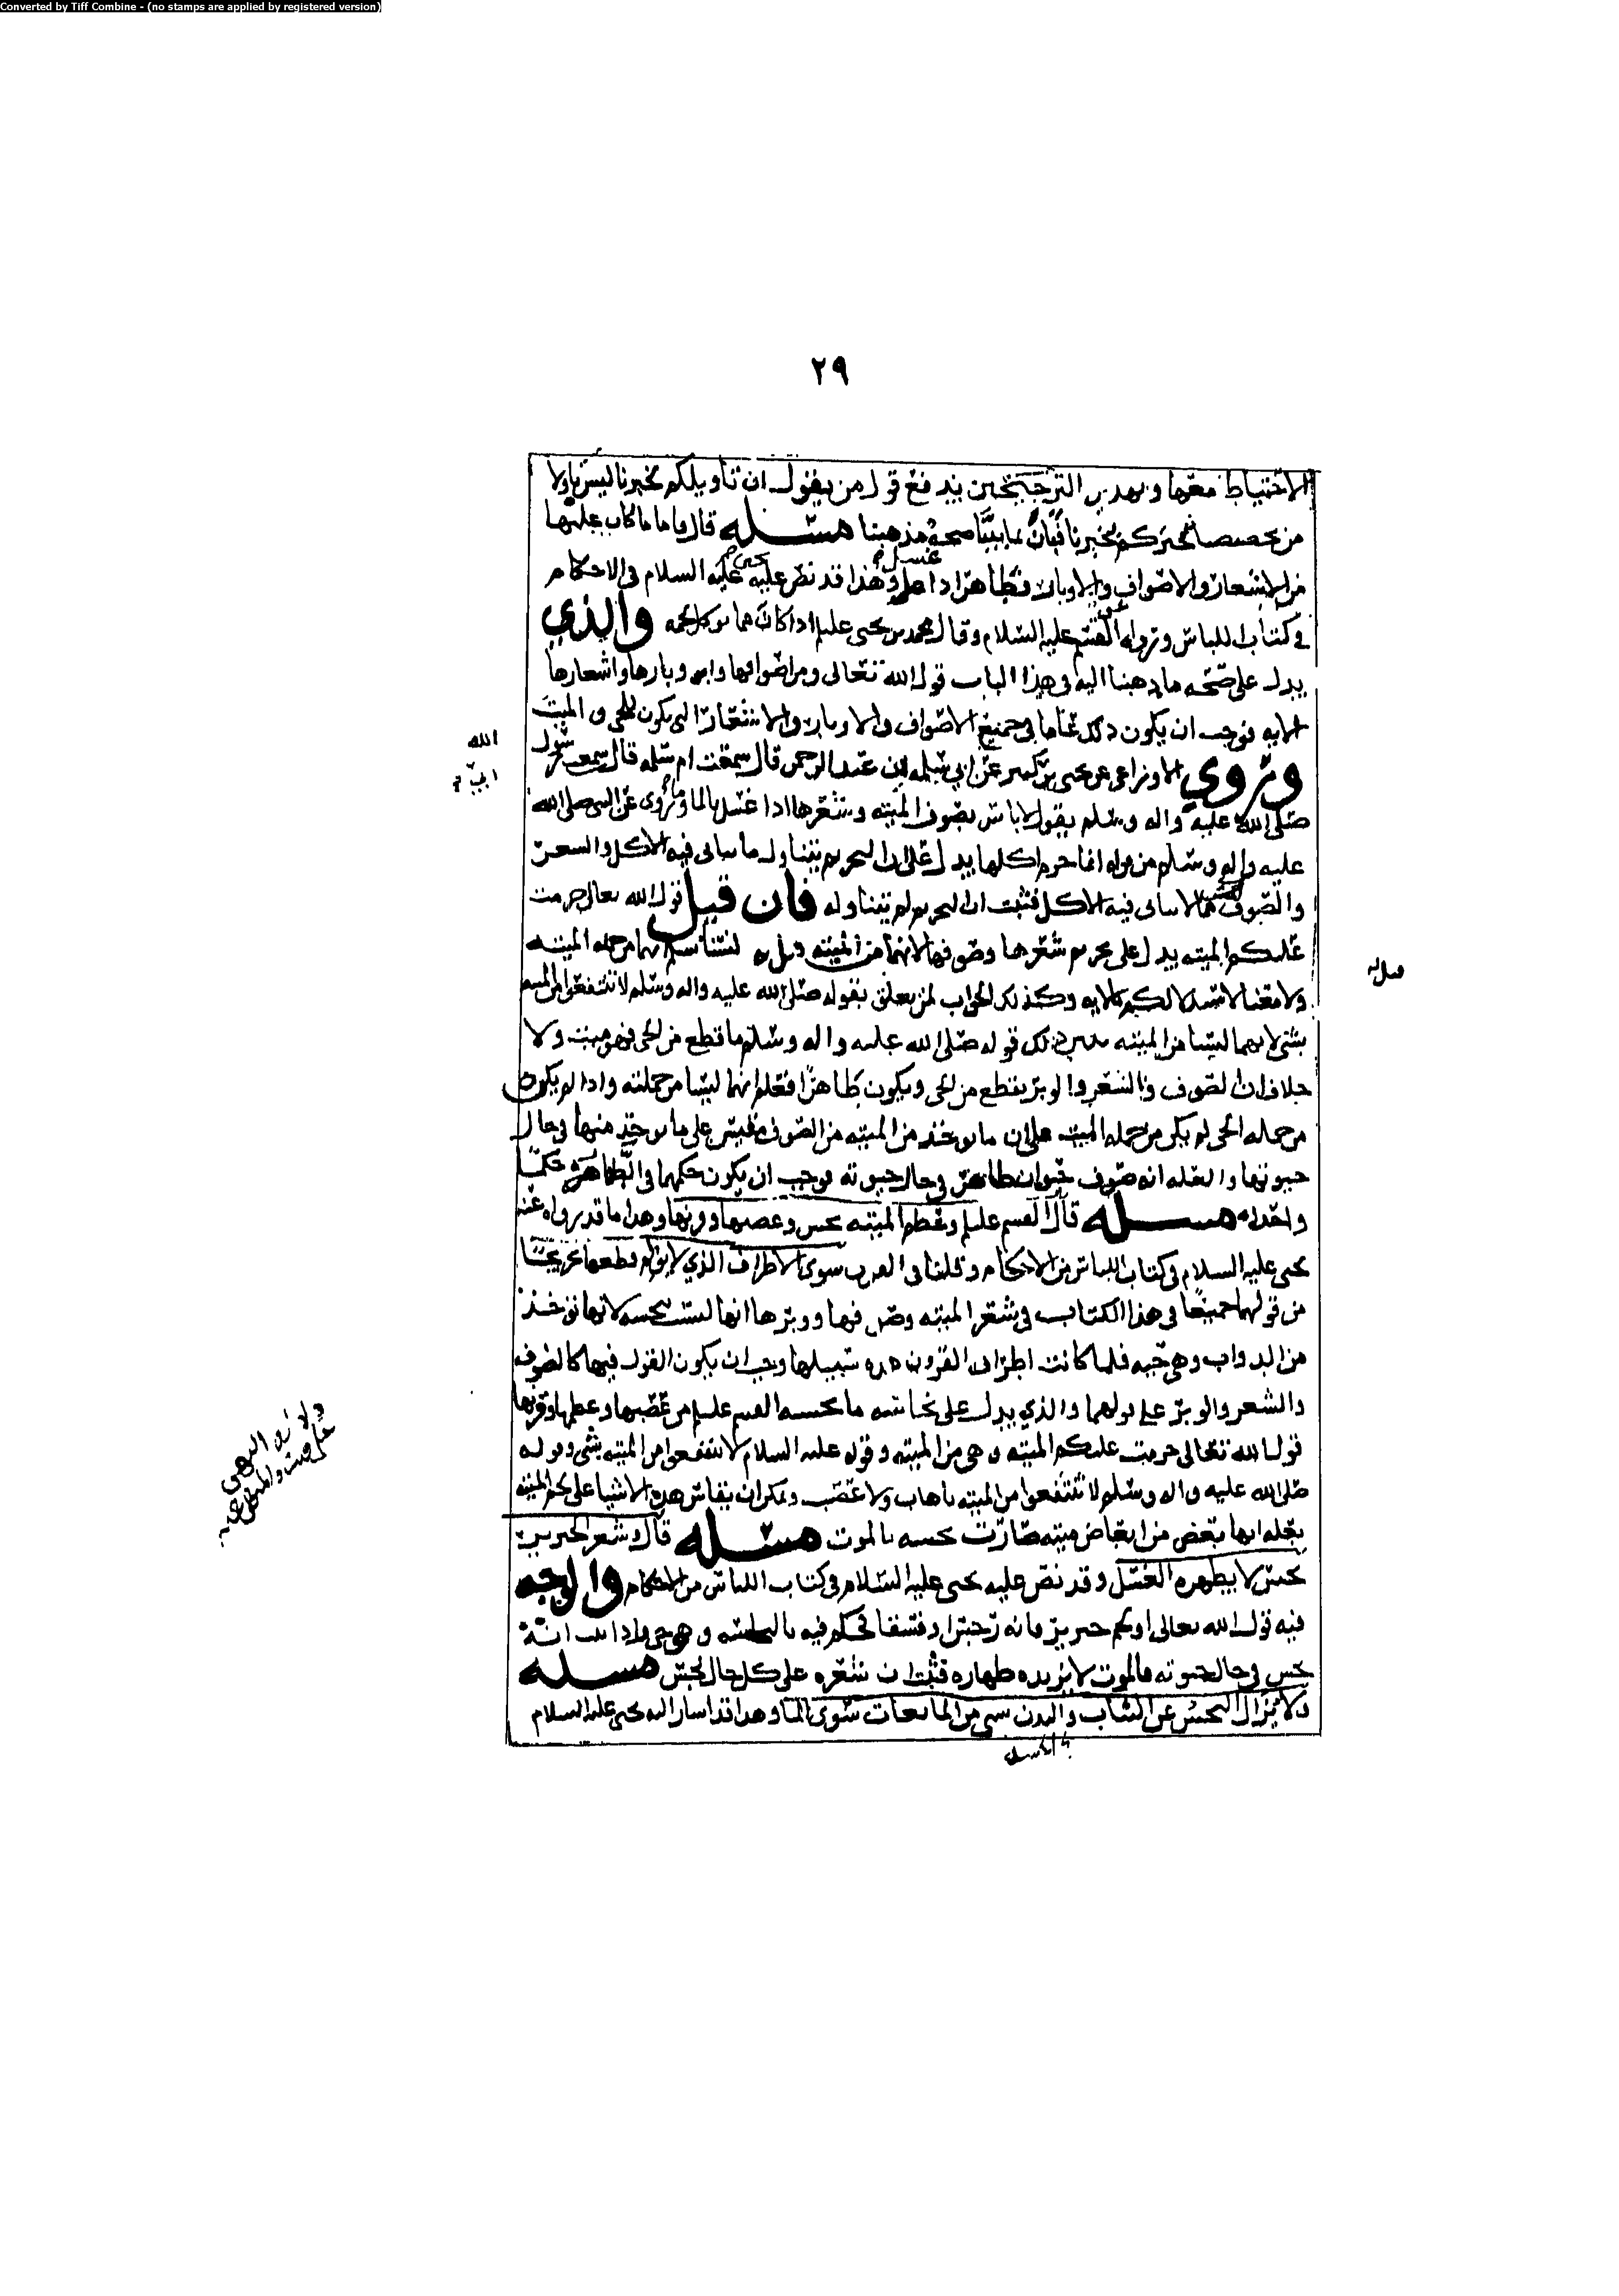 Converted by Tiff Combine - (no stamps are applied by registered version)
٢٩
الاحتياط معها وبهذين الترجيحين يندفع قول من يقول ان تأويلكم لخبرنا ليس باولا
من تخصيصنا لخبركم بخبرنا فبان بما بينا صحة مذهبنا مسئلة قال واما ما كان عليها
من الاشعار والاصواف والاوبار فطاهر اذا غسل وهذا قد نص عليه يحيى عليه السلام في الاحكام
في كتاب اللباس ورواه عن القسم عليه السلام وقال محمد بن يحيى عليلم اذا كانت مما يوكل لحمه والذي
يدل على صحة ما ذهبنا اليه في هذا الباب قول الله تعالى ومن اصوافها واوبارها واشعارها
الايه فوجب ان يكون ذلك عاما في جميع الاصواف والاوبار والاشعار التي تكون للحي والميت
وروي الاوزاعي عن يحيى بن كثير عن ابي سلمه ابن عبد الرحمن قال سمعت ام سلمه قال سمعت رسول
الله
صلى الله عليه واله وسلم يقول لاباس بصوف الميته وشعرها اذا غسل بالما وما روى عن النبي صلى الله
عليه واله وسلم من قوله انما حرم اكلها يدل على ان التحريم يتناول ما يتاتى فيه الاكل والشعر
والصوف مما لا يتاتى فيه الاكل فثبت ان التحريم لم يتناوله فان قيل قول الله تعالى حرمت
عليكم الميته يدل على تحريم شعرها وصوفها لانهما من الميته قيل له لسنا نسلم انهما من جمله الميته
ولا معنا لاستدلالكم بالايه وكذلك الجواب لمن يعلق بقوله صلى الله عليه واله وسلم لا تنتفعوا من الميته
بشي لانهما ليسا من الميته ذلك قوله صلى الله عليه واله وسلم ما قطع من الحي فهو ميت ولا
خلاف ان الصوف والشعر والوبر يقطع من الحي ويكون طاهرا فعلم انهما ليسا من جملته واذا لم يكون
من جمله الحي لم يكن من جمله الميت على ان ما يوخذ من الميته من الصوف مقيس على ما يوخذ منها في حال
حيوتها والعله انه صوف حيوان طاهر في حال حيوته فوجب ان يكون حكمهما في الطهاره حكما
واحدا مسئلة قال القسم عليلم وعظم الميته نجس وعصبها وقرنها وهذا ما قد رواه عنه
يحيى عليه السلام في كتاب اللباس من الاحكام وقلنا في القرن سوى الاطراف الذي لا يولم قطعها تخريجا
من قولهما جميعا في هذا الكتاب في شعر الميته وصوفها ووبرها انها ليست نجسه لانها توخذ
من الدواب وهي حيه فلما كانت اطراف القرون هذه سبيلها وجب ان يكون القول فيها كالصوف
والشعر والوبر على قولهما والذي يدل على نجاسه ما نجسه القسم عليلم من عصبها وعظمها وقرنها
قول الله تعالى حرمت عليكم الميته وهي من الميته وقوله عليه السلام لا تنتفعوا من الميته بشي وقوله
صلى الله عليه واله وسلم لا تنتفعوا من الميته باهاب ولا عصب ويمكن ان يقاس هذه الاشيا على لحم الميته
بعله انها بعض من ابعاض ميته صارت نجسه بالموت مسئلة قال وشعر الخنزير
نجس لا يطهره الغسل وقد نص عليه يحيى عليه السلام في كتاب اللباس من الاحكام والوجه
فيه قول الله تعالى او لحم خنزير فانه رجس او فسقا فحكم فيه بالنجاسه وهو حي واذا ثبت انه
نجس في حال حيوته فالموت لا يزيده طهاره فثبت ان شعره على كل حال نجس مسئلة
ولا يزال النجس عن الثياب والبدن بشي من المايعات سوى الما وهذا قد اشار اليه يحيى عليه السلام